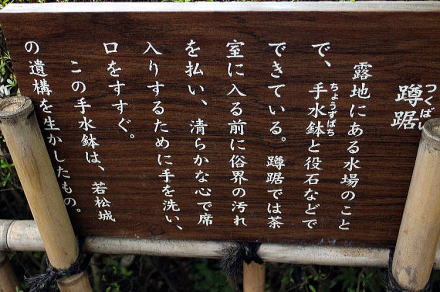 蹲踞
つくばい
露地にある水場のこと
で、手水鉢と役石などで
ちょうずばち
できている。蹲踞では茶
室に入る前に俗界の汚れ
を払い、清らかな心で席
入りするために手を洗い、
口をすすぐ。
この手水鉢は、若松城
の遺構を生かしたもの。